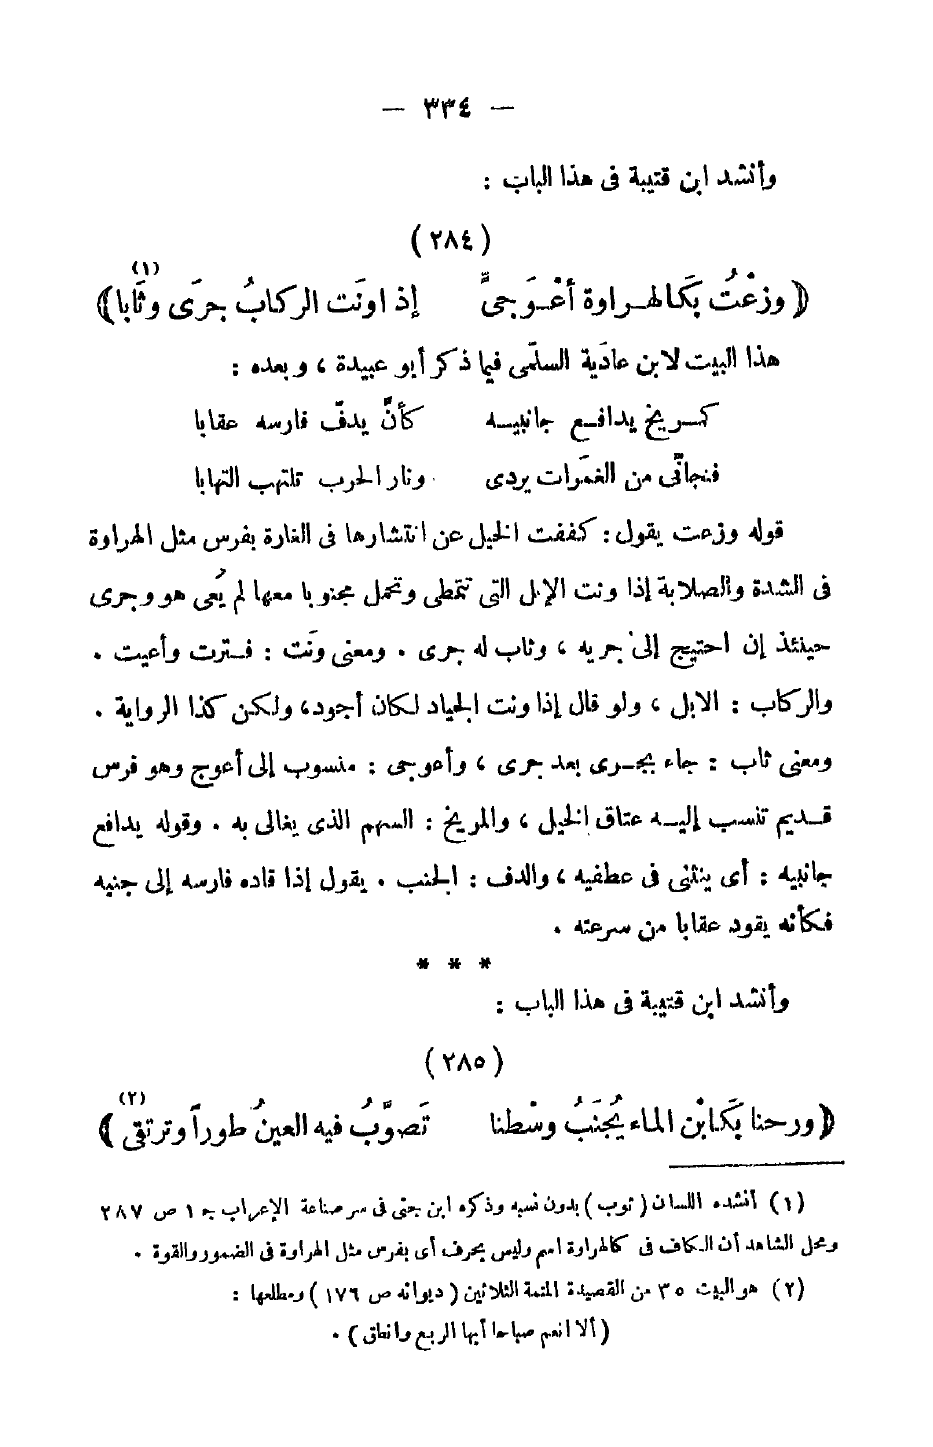 — ٣٣٤ —
وأنشد ابن قتيبة فى هذا الباب :
(٢٨٤)
﴿ وزعْتُ بكَالهراوة أعْوَجىٍّ إذ اونَت الركابُ جرَى وثَابا﴾ (١)
هذا البيت لابن عادَية السلَّمى فيما ذكر أبو عبيدة ، وبعده :
كمريخ يدافع جانبيه كأنَّ يدفّ فارسه عقابا
فنجانّى من الغمَرات يردى ونار الحرب تلتهب التهابا
قوله وزعت يقول : كففت الخيل عن انتشارها فى الغارة بفرس مثل الهراوة
فى الشدة والصلابة إذا ونت الإبل التى تتمطى وتحمل مجنوبا معها لم يُعى هو وجرى
حينئذ إن احتيج إلى جريه ، وثاب له جرى . ومعنى ونَت : فترت وأعيت .
والركاب : الابل ، ولو قال إذا ونت الجياد لكان أجود، ولكن كذا الرواية .
ومعنى ثاب : جاء بجرى بعد جرى ، وأعوجى : منسوب إلى أعوج وهو فرس
قديم تنسب إليه عتاق الخيل ، والمريخ : السهم الذى يغالى به . وقوله يدافع
جانبيه : أى ينثنى فى عطفيه ، والدف : الجنب . يقول إذا قاده فارسه إلى جنبه
فكأنه يقود عقابا من سرعته .
* * *
وأنشد ابن قتيبة فى هذا الباب :
(٢٨٥)
﴿ ورحنا بكَابْن الماء يُجنَبُ وسْطنا تَصوَّبُ فيه العينُ طوراً وترتقى ﴾ (٢)
(١) أنشده اللسان ( ثوب ) بدون نسبه وذكره ابن جنى فى سر صناعة الإعراب جـ ١ ص ٢٨٧
ومحل الشاهد أن الكاف فى كالهراوة اسم وليس بحرف أى بفرس مثل الهراوة فى الضمور والقوة .
(٢) هو البيت ٣٥ من القصيدة المتمة الثلاثين ( ديوانه ص ١٧٦ ) ومطلعها :
( ألا انعم صباحا أيها الربع وانطق ) .